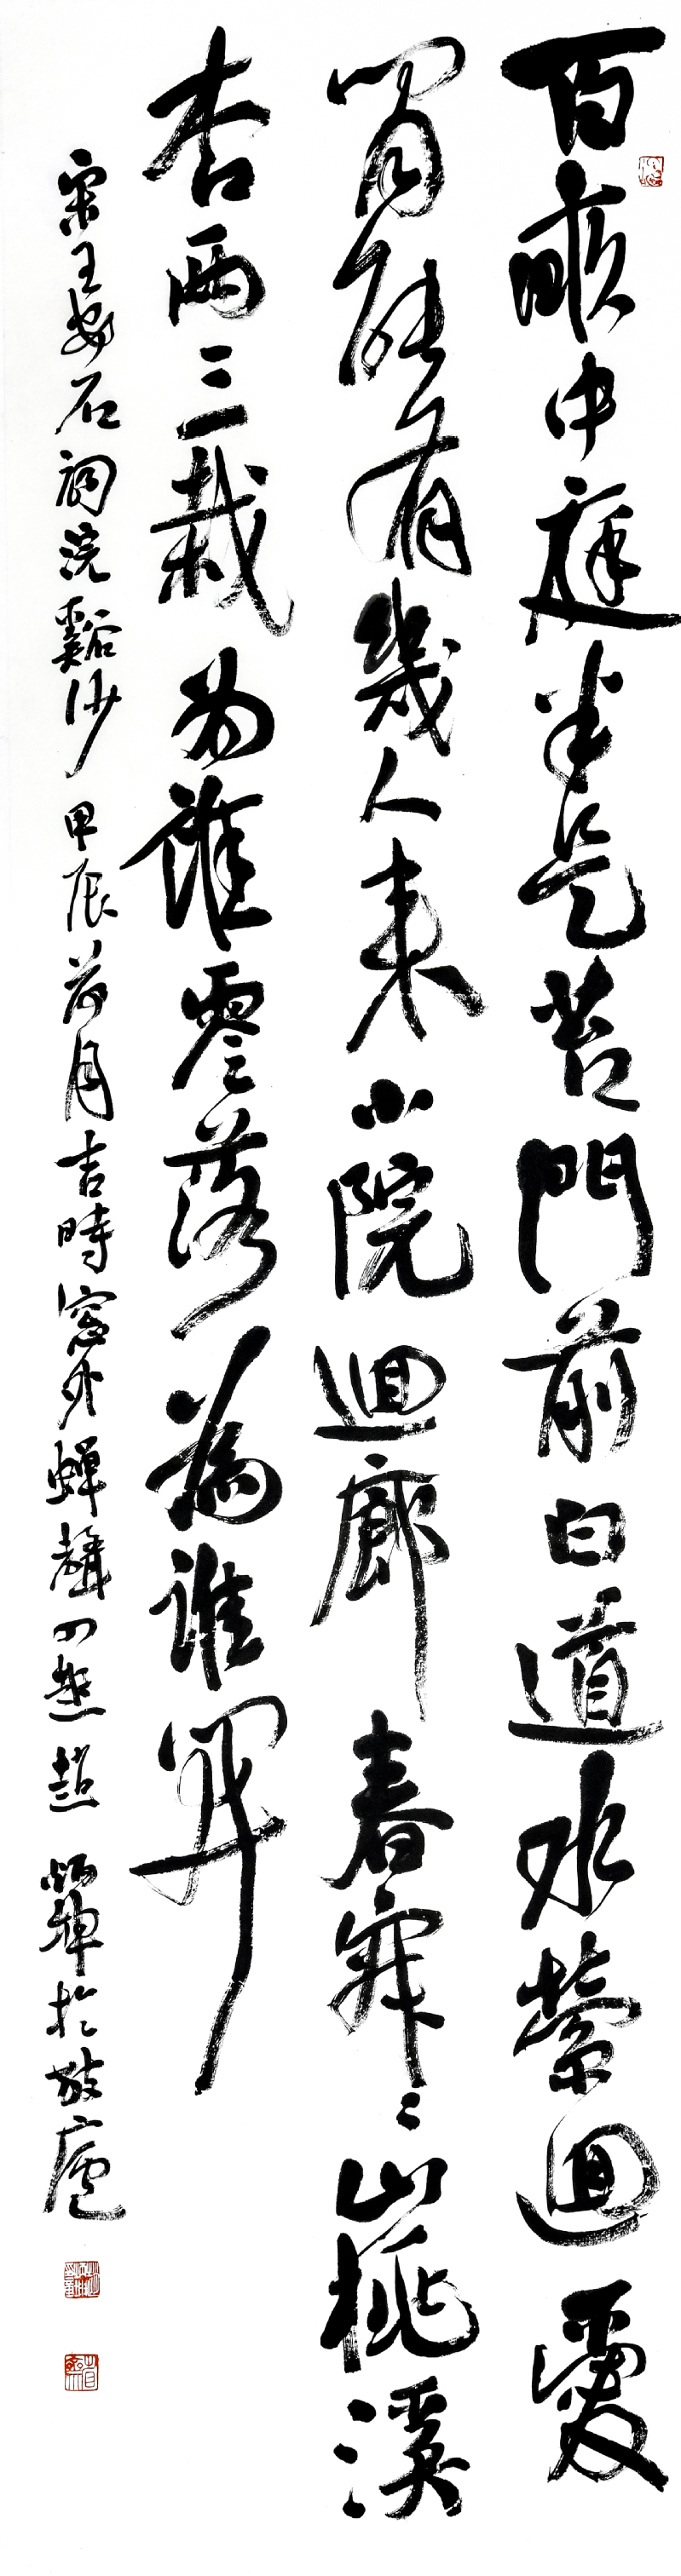 百畝中庭半是苔門前白道水縈迴愛
閒能有幾人來小院迴廊春寂〻山桃溪
杏兩三栽為誰零落為誰開
宋王安石詞浣谿沙 甲辰荷月吉時窗外蟬聲四起 趙炳輝於廬